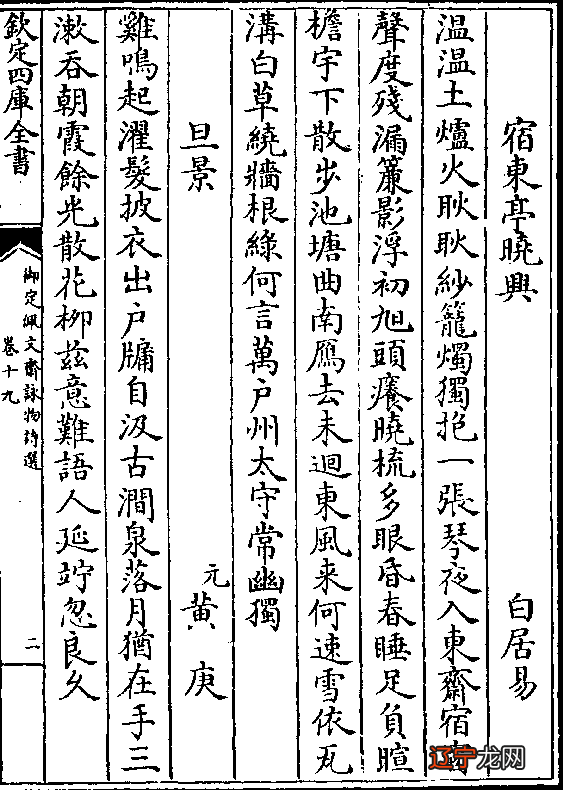 宿東亭曉興 白居易
温温土爐火耿耿紗籠燭獨抱一張琴夜入東齋宿窗
聲度殘漏簾影浮初旭頭癢曉梳多眼昏春睡足負暄
檐宇下散步池塘曲南鴈去未迴東風来何速雪依瓦
溝白草繞牆根綠何言萬户州太守常幽獨
旦景 元黄庚
雞鳴起濯髮披衣出户牖自汲古澗泉落月猶在手三
漱吞朝霞餘光散花柳兹意難語人延竚忽良久
欽定四庫全書
御定佩文齋詠物詩選
卷十九
二
辽宁龙网